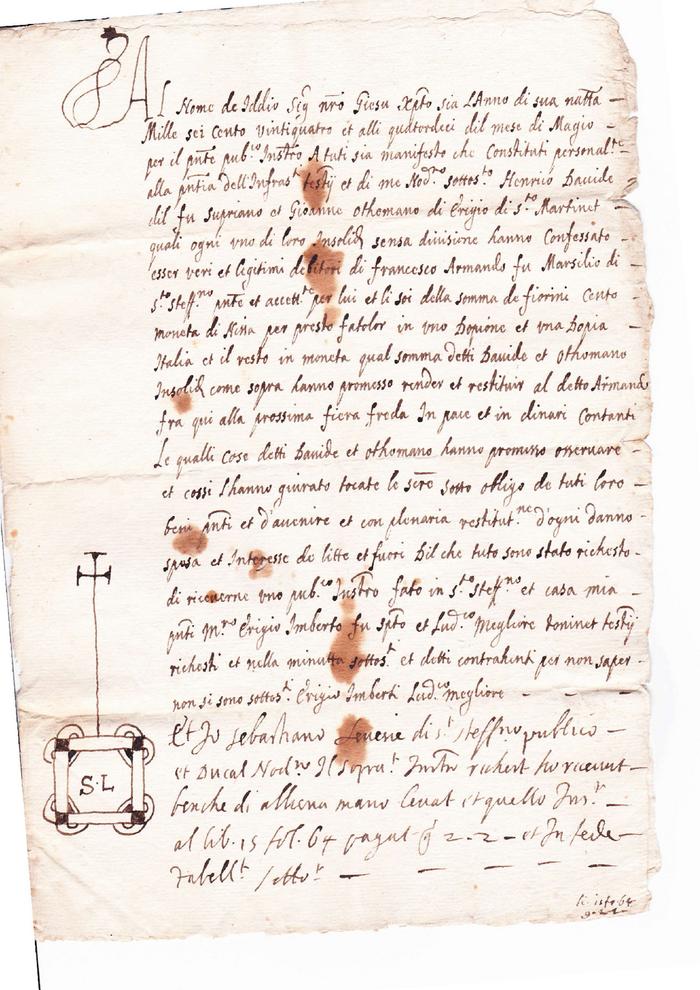 Al Nome de Iddio Sig nrõ Giesu Xpto sia L'Anno di sua natta
Mille sei Cento vintiquatro et alli quatordeci dil mese di Magio
per il pnte pub.co Instro A tuti sia manifesto che Constituti personal.te
alla pntia dell'Infras.ti testij et di me Nod.ro sottos.to Henrico Davide
dil fu Supriano et Gioanne Othomano di Erigio di s.to Martinet
quali ogni vno di loro Insolid sensa divisione hanno Confessato
esser veri et legitimi debitori di francesco Armando fu Marsilio di
s.to steff.no pnte et accett.te per lui et li soi della somma de fiorini Cento
moneta di Nissa per presto fatolor in vno Dopione et vna Dopia
Italia et il resto in moneta qual somma detti Davide et Othomano
Insolid come sopra hanno promesso render et restituir al detto Armando
fra qui alla prossima fiera freda In pace et in dinari Contanti
Le qualli Cose detti Davide et othomano hanno promisso osservare
et cossi L'hanno giurato tocate le scre sotto obligo de tuti loro
beni pnti et d'avenire et con plenaria restitut.ne d'ogni danno
spesa et Interesse de litte et fuori Dil che tuto sono stato richesto
di riceverne vno pub.co Instro fato in s.to steff.no et casa mia
pnti M.ro Erigio Imberto fu spto et Lud.co Megliore toninet testij
richesti et nella minutta sottos.ti et detti contrahenti per non saper
non si sono sottos.ti Erigio Imberti Lud.co megliore
Et Jo Sebastiano di s.t steffno publico
et Ducal Nod.ro Il sopra.t Instro richest ho receuut
benche di alliena mano levat et quello Ins.t
al lib. 15 fol. 64 pagat g 2-2- et In fede
tabell.t sotto.t
S.L
li. 15 fo 64
g. 2-2-